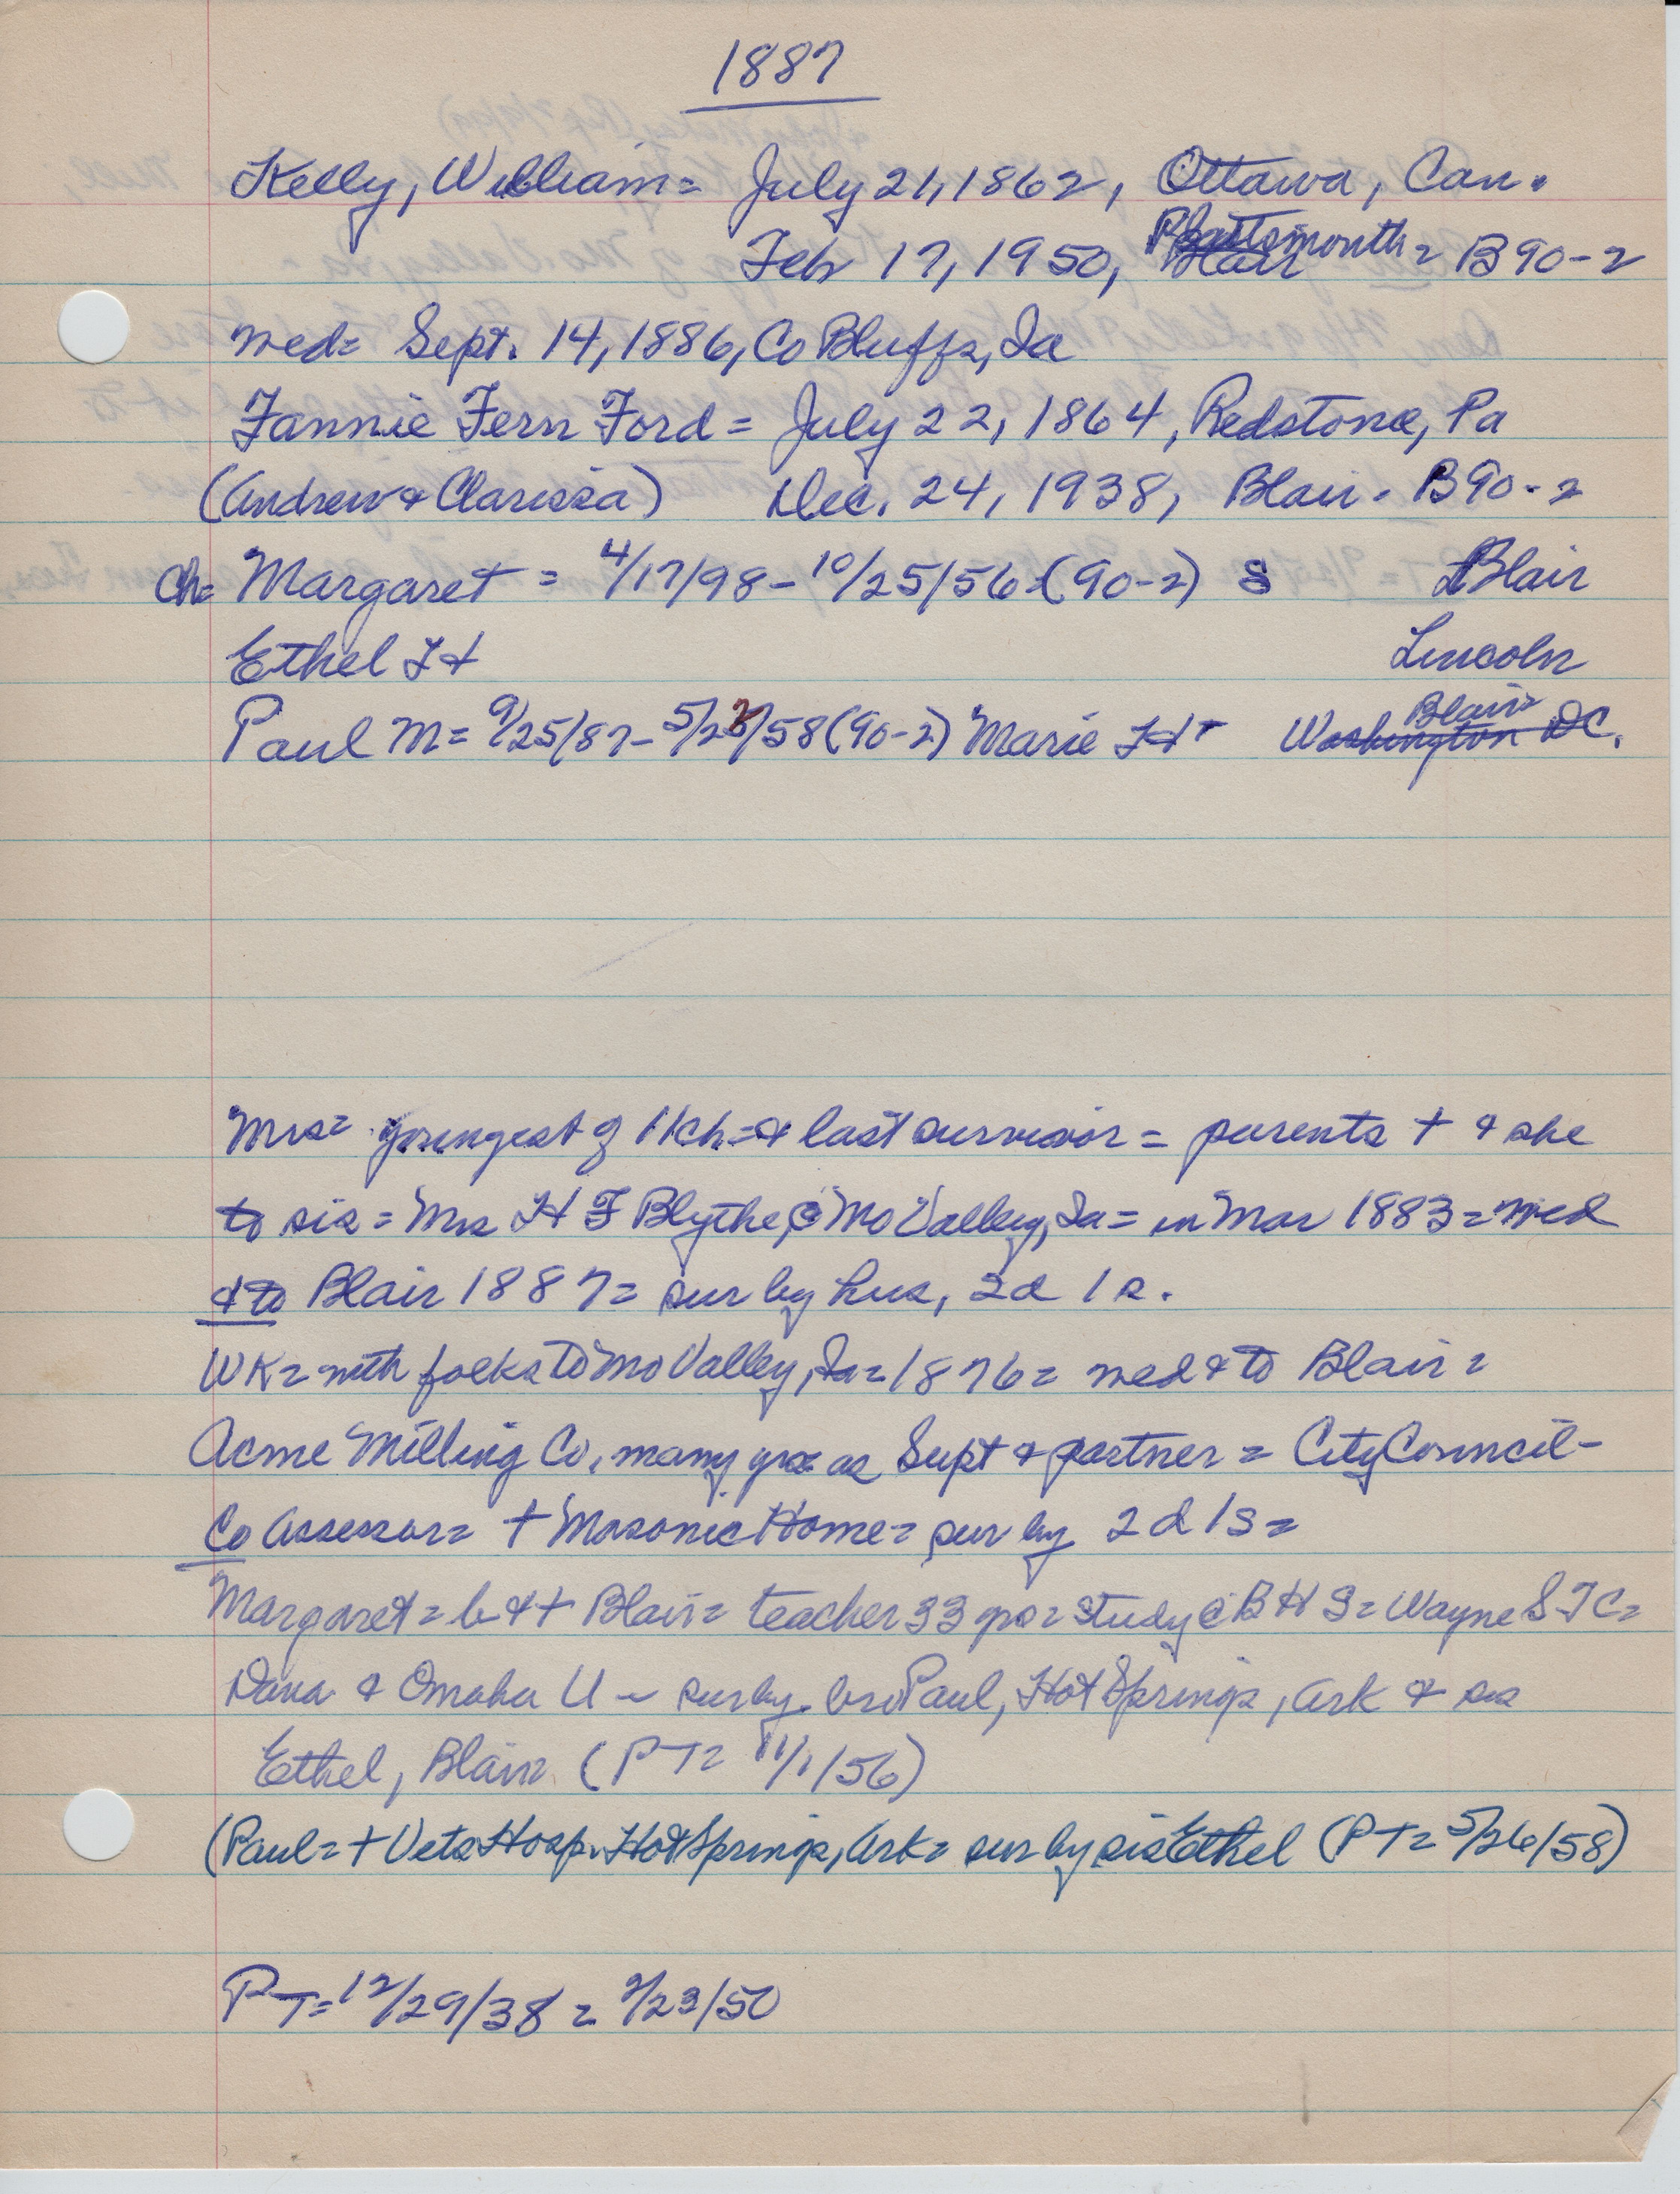 1887
Kelly, William = July 21, 1862, Ottawa, Can.
Plattsmouth =
Feb 17, 1950, Blair B90-2
med = Sept. 14, 1886, Co Bluffs, Ia
Fannie Fern Ford = July 22, 1864, Redstone, Pa
(Andrew & Clarissa) Dec. 24, 1938, Blair. B90-2
Ch = Margaret = 4/17/98 - 10/25/56 (90-2) S Blair
Ethel Lincoln
Blair =
Paul M = 9/25/87 - 5/2/58 (90-2) Marie Washington DC.
Mrs = youngest of 11 ch = & last survivor = parents + & she
to sis = Mrs H F Blythe, @ Mo Valley, Ia = in Mar 1883 = med
& to Blair 1887 = sur by hus, 2d 1s.
WK = with folks to Mo Valley, Ia = 1876 = med & to Blair =
Acme Milling Co, many yrs as Supt & partner = City Council -
Co Assessor = + Masonic Home = sur by 2d 1s =
Margaret = b & + Blair = teacher 33 yrs = study @ BHS = Wayne STC =
Dana & Omaha U - sur by bro Paul, Hot Springs, Ark & sis
Ethel, Blair. (PT = 11/1/56)
(Paul = + Vets Hosp. Hot Springs, Ark = sur by sis Ethel (PT = 5/26/58)
PT = 12/29/38 = 2/23/50